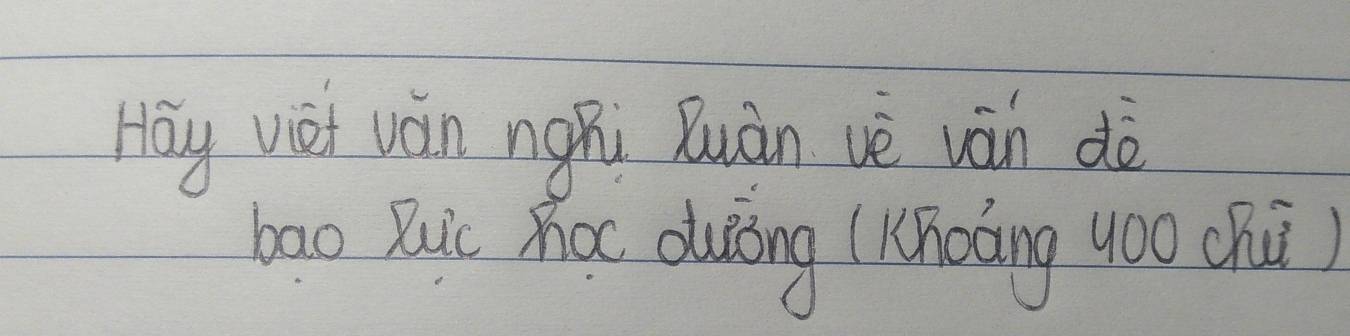 Hãy viết văn nghị luận về vấn đề
bạo lực học đường (Khoảng 400 chữ)